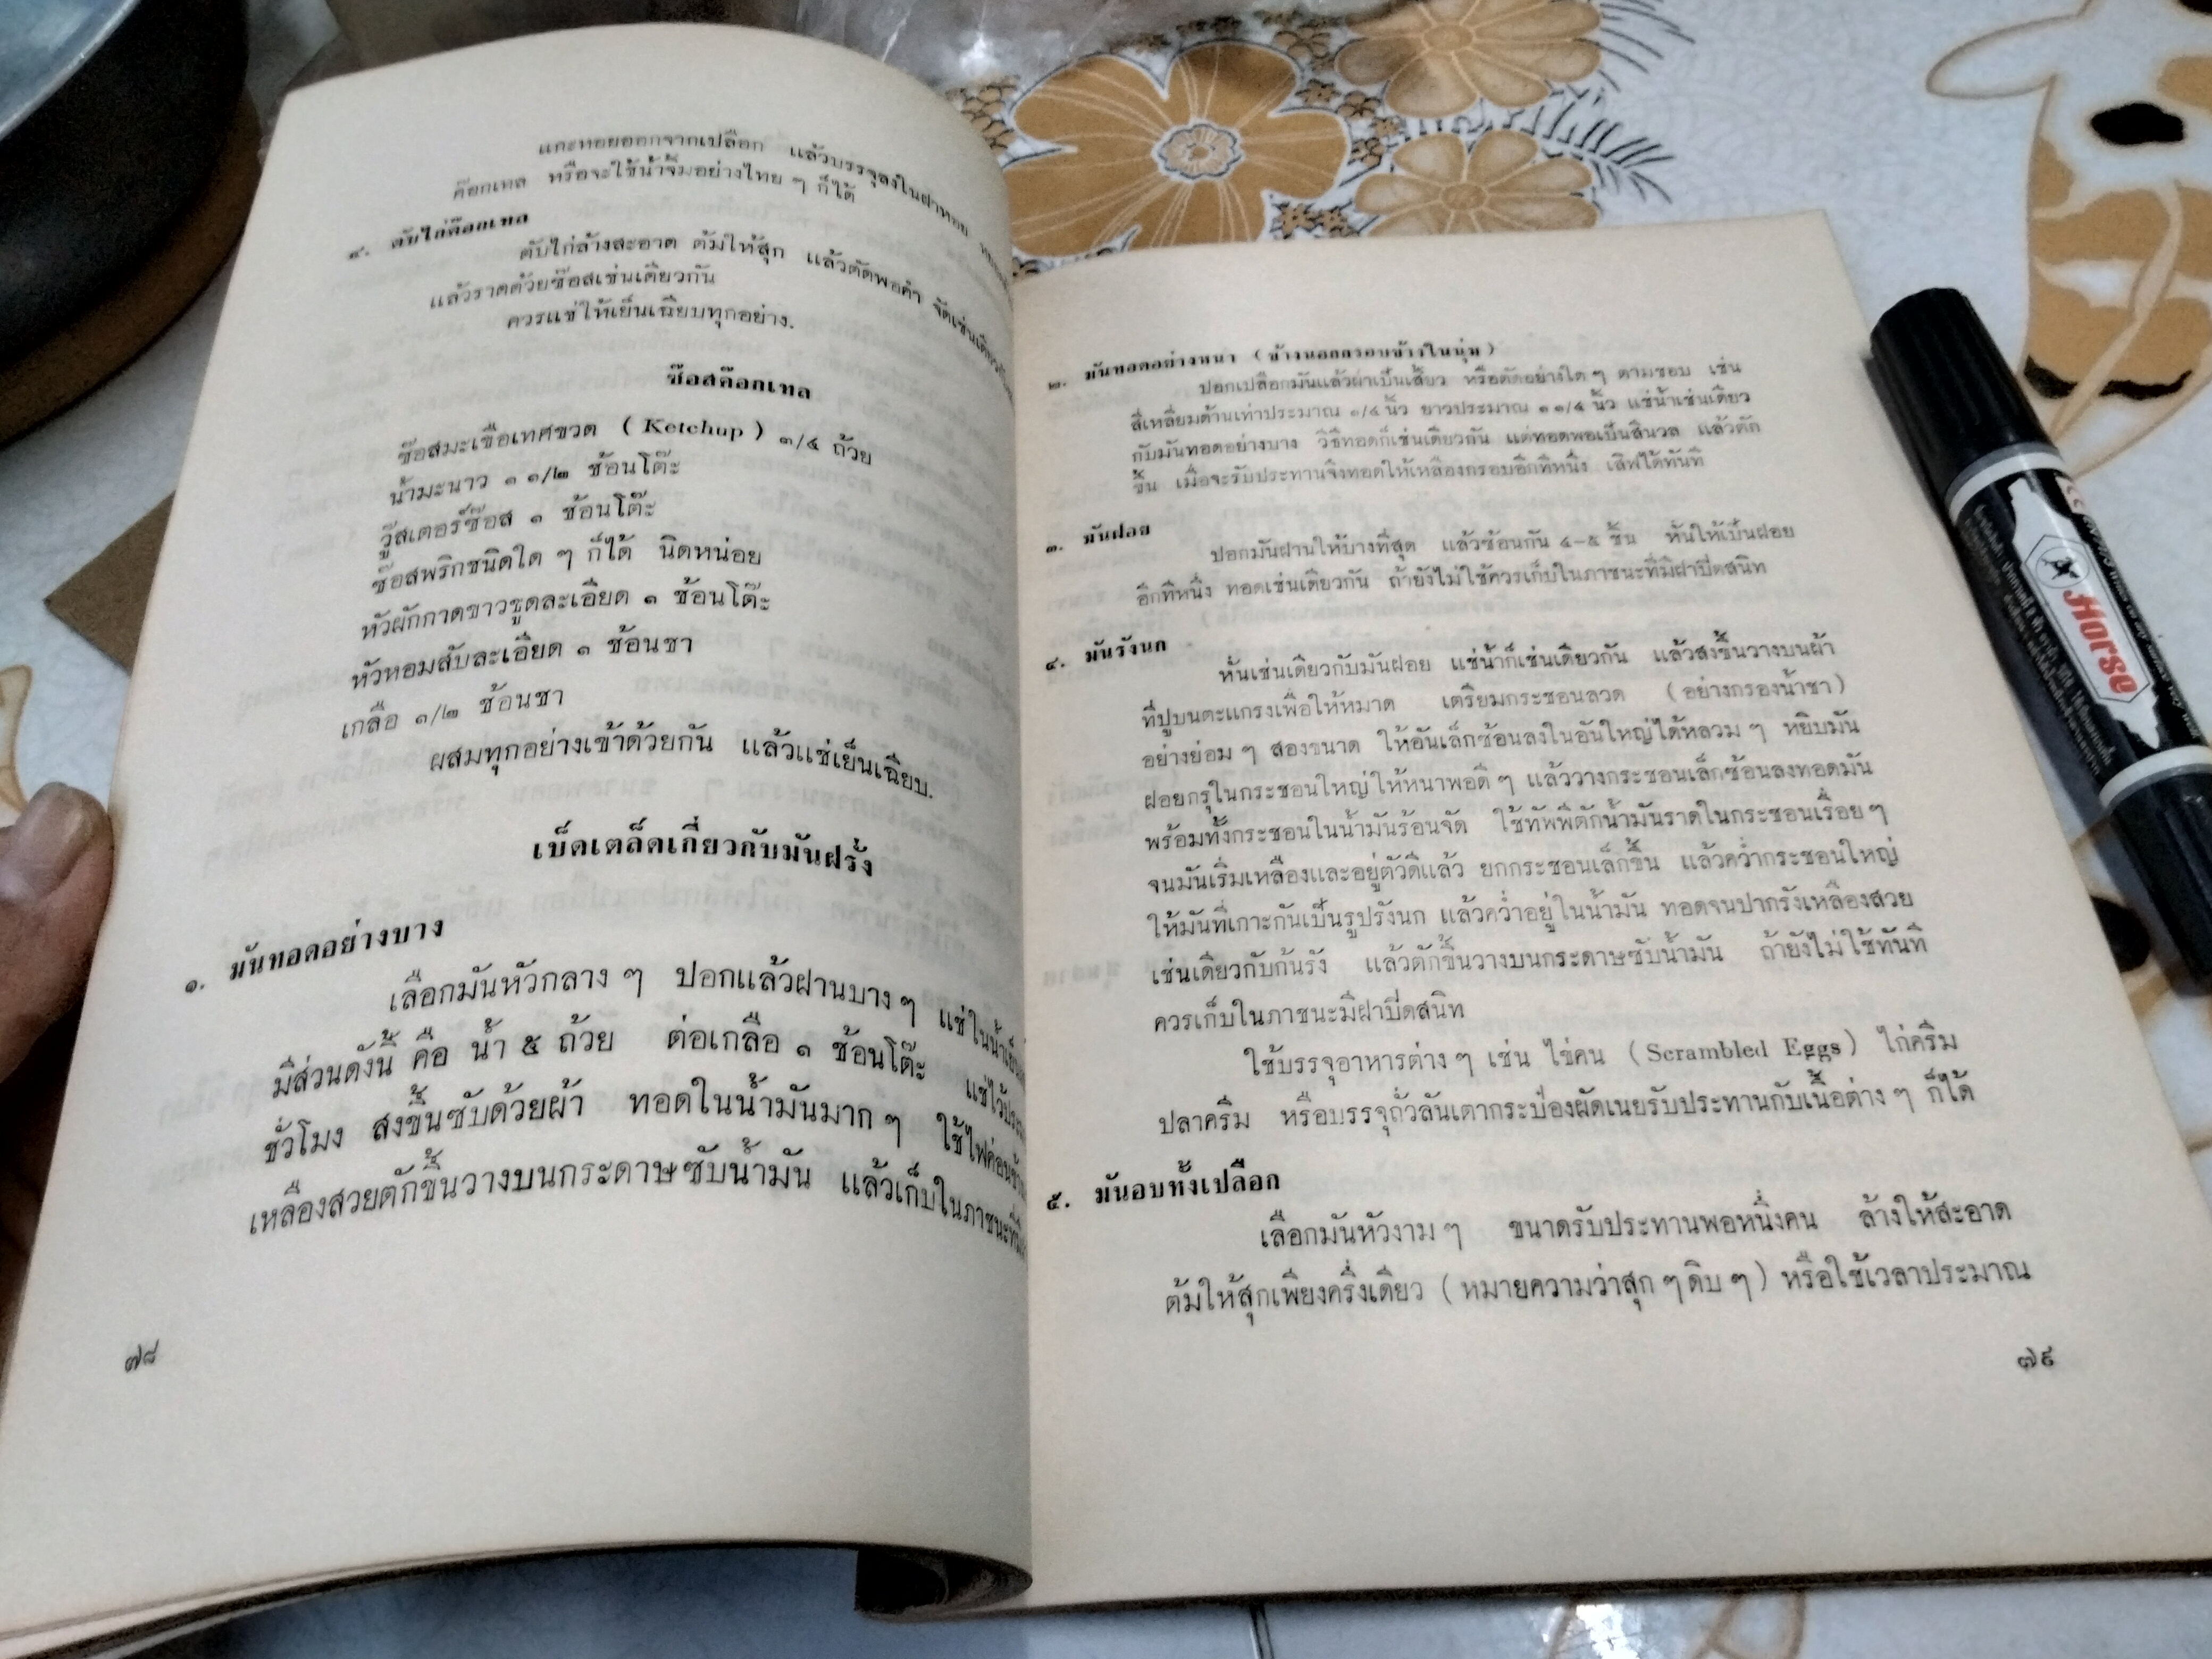 แกะหอยออกจากเปลือก แล้วบรรจุลงในฝาหอย
ค๊อกเทล หรือจะใช้น้ำจิ้มอย่างไทย ๆ ก็ได้
๙. ตับไก่ค๊อกเทล
ตับไก่ล้างสะอาด ต้มให้สุก แล้วตัดพอคำ จัดเช่นเดียวกัน
แล้วราดด้วยซ๊อสเช่นเดียวกัน
ควรแช่ให้เย็นเฉียบทุกอย่าง.
ซ๊อสค๊อกเทล
ซ๊อสมะเขือเทศขวด ( Ketchup ) ๓/๔ ถ้วย
น้ำมะนาว ๑ ๑/๒ ช้อนโต๊ะ
วู๊สเตอร์ซ๊อส ๑ ช้อนโต๊ะ
ซ๊อสพริกชนิดใด ๆ ก็ได้ นิดหน่อย
หัวผักกาดขาวขูดละเอียด ๑ ช้อนโต๊ะ
หัวหอมสับละเอียด ๑ ช้อนชา
เกลือ ๑/๒ ช้อนชา
ผสมทุกอย่างเข้าด้วยกัน แล้วแช่เย็นเฉียบ.
เบ็ดเตล็ดเกี่ยวกับมันฝรั่ง
๑. มันทอดอย่างบาง
เลือกมันหัวกลาง ๆ ปอกแล้วฝานบาง ๆ แช่ในน้ำเย็น
มีส่วนดังนี้ คือ น้ำ ๕ ถ้วย ต่อเกลือ ๑ ช้อนโต๊ะ แช่ไว้
ชั่วโมง สงขึ้นซับด้วยผ้า ทอดในน้ำมันมาก ๆ ใช้ไฟค่อนข้าง
เหลืองสวยตักขึ้นวางบนกระดาษซับน้ำมัน แล้วเก็บในภาชนะที่
๗๘
๒. มันทอดอย่างหนา ( ข้างนอกกรอบข้างในนุ่ม )
ปอกเปลือกมันแล้วผ่าเป็นเสี้ยว หรือตัดอย่างใด ๆ ตามชอบ เช่น
สี่เหลี่ยมด้านเท่าประมาณ ๑/๔ นิ้ว ยาวประมาณ ๑ ๑/๔ นิ้ว แช่น้ำเช่นเดียว
กับมันทอดอย่างบาง วิธีทอดก็เช่นเดียวกัน แต่ทอดพอเป็นสีนวล แล้วตัก
ขึ้น เมื่อจะรับประทานจึงทอดให้เหลืองกรอบอีกทีหนึ่ง เสิฟได้ทันที
๓. มันฝอย
ปอกมันฝานให้บางที่สุด แล้วซ้อนกัน ๔-๕ ชิ้น หั่นให้เป็นฝอย
อีกทีหนึ่ง ทอดเช่นเดียวกัน ถ้ายังไม่ใช้ควรเก็บในภาชนะที่มีฝาปิดสนิท
๔. มันรังนก
หั่นเช่นเดียวกับมันฝอย แช่น้ำก็เช่นเดียวกัน แล้วสงขึ้นวางบนผ้า
ที่ปูบนตะแกรงเพื่อให้หมาด เตรียมกระชอนลวด (อย่างกรองน้ำชา)
อย่างย่อม ๆ สองขนาด ให้อันเล็กซ้อนลงในอันใหญ่ได้หลวม ๆ หยิบมัน
ฝอยกรุในกระชอนใหญ่ให้หนาพอดี ๆ แล้ววางกระชอนเล็กซ้อนลงทอดมัน
พร้อมทั้งกระชอนในน้ำมันร้อนจัด ใช้ทัพพีตักน้ำมันราดในกระชอนเรื่อย ๆ
จนมันเริ่มเหลืองและอยู่ตัวดีแล้ว ยกกระชอนเล็กขึ้น แล้วคว่ำกระชอนใหญ่
ให้มันที่เกาะกันเป็นรูปรังนก แล้วคว่ำอยู่ในน้ำมัน ทอดจนปากรังเหลืองสวย
เช่นเดียวกับก้นรัง แล้วตักขึ้นวางบนกระดาษซับน้ำมัน ถ้ายังไม่ใช้ทันที
ควรเก็บในภาชนะมีฝาปิดสนิท
ใช้บรรจุอาหารต่าง ๆ เช่น ไข่คน (Scrambled Eggs) ไก่ครีม
ปลาครีม หรือบรรจุถั่วลันเตากระป๋องผัดเนยรับประทานกับเนื้อต่าง ๆ ก็ได้
๕. มันอบทั้งเปลือก
เลือกมันหัวงาม ๆ ขนาดรับประทานพอหนึ่งคน ล้างให้สะอาด
ต้มให้สุกเพียงครึ่งเดียว (หมายความว่าสุก ๆ ดิบ ๆ) หรือใช้เวลาประมาณ
๗๙
Horse